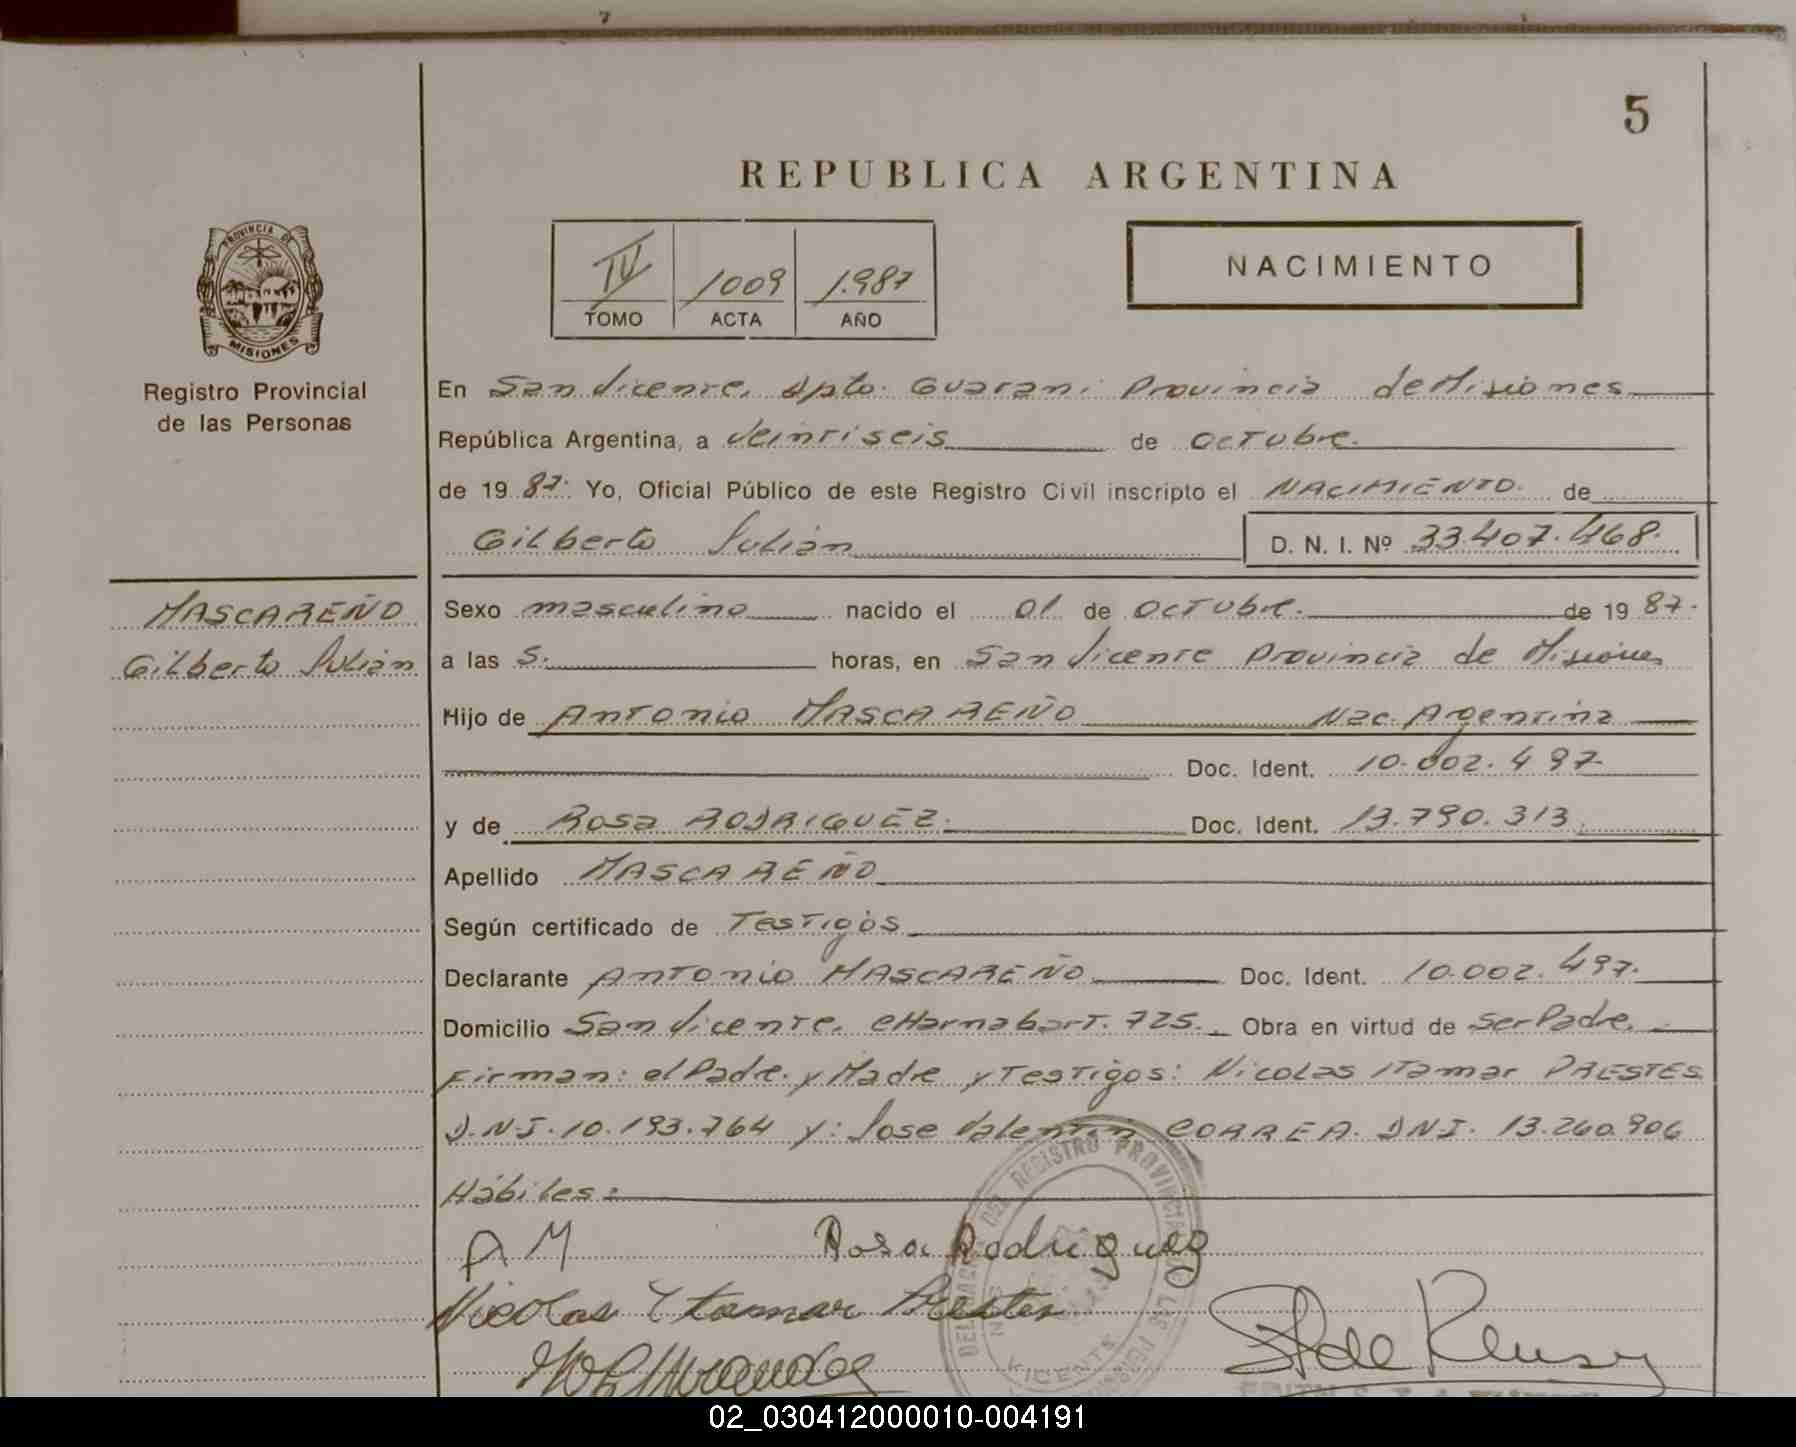 5
REPUBLICA ARGENTINA
PROVINCIA DE
MISIONES
Registro Provincial
de las Personas
IV 1009 1.987
TOMO ACTA AÑO
NACIMIENTO
En San Vicente, Dpto. Guarani Provincia de Misiones
República Argentina, a Veintiseis de Octubre.
de 19 87. Yo, Oficial Público de este Registro Civil inscripto el NACIMIENTO. de
Gilberto Julián D. N. I. Nº 33.407.468.
MASCAREÑO
Gilberto Julián
Sexo masculino nacido el 01 de Octubre. de 19 87.
a las 5. horas, en San Vicente Provincia de Misiones
Hijo de Antonio MASCAREÑO Nac. Argentina
Doc. Ident. 10.002.497
y de Rosa RODRIGUEZ. Doc. Ident. 13.790.313
Apellido MASCAREÑO
Según certificado de Testigos
Declarante Antonio MASCAREÑO Doc. Ident. 10.002.497.
Domicilio San Vicente, 725. Obra en virtud de ser Padre.
Firman: el Padre. y Madre y Testigos: Nicolas Itamar PRESTES
D.N.I. 10.193.764 y: Jose Valentin CORREA. DNI. 13.260.906
Hábiles:
A M Rosa Rodriguez
Nicolas Ytamar Prestes
DEL REGISTRO PROVINCIAL DE LAS
VICENTE
02_030412000010-004191